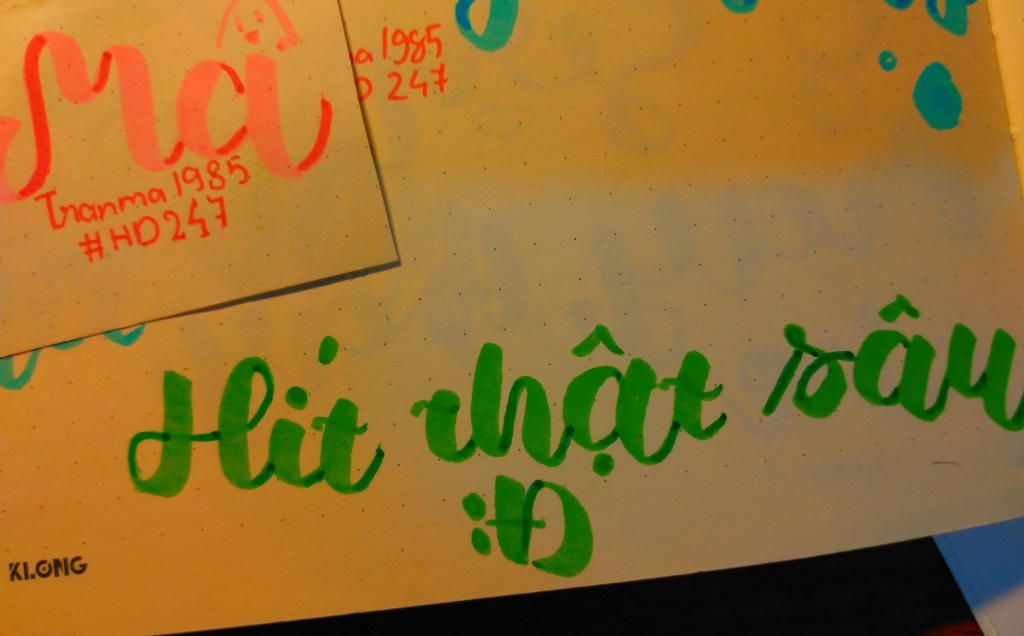 Mã
Tranma 1985
#HD247
a 1985
D 247
Hít thật sâu
:Đ
KLONG